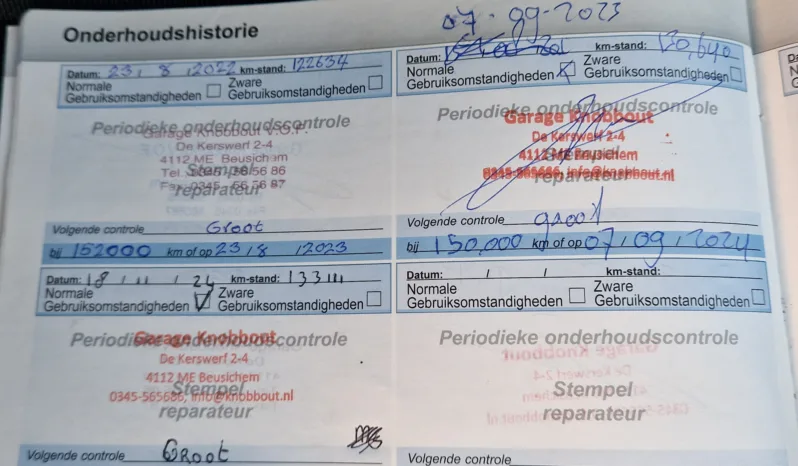 Onderhoudshistorie
07-09-2023
Datum: 23, 8, 2022 km-stand: 122634
Normale Gebruiksomstandigheden
Zware Gebruiksomstandigheden
Periodieke onderhoudscontrole
Garage Knobbout V.O.F.
De Kerswerf 2-4
4112 ME Beusichem
Stempel
reparateur
Volgende controle Groot
bij 152000 km of op 23/8/2023
Datum: km-stand: 130,640
Normale Gebruiksomstandigheden
Zware Gebruiksomstandigheden
Periodieke onderhoudscontrole
Garage Knobbout
De Kerswerf 2-4
4112 ME Beusichem
Stempel
0345-565686, info@knobbout.nl
reparateur
Volgende controle groot
bij 150,000 km of op 07/09/2024
Datum: 18 / 11 / 24 km-stand: 133111
Normale Gebruiksomstandigheden
Zware Gebruiksomstandigheden
Periodieke onderhoudscontrole
Garage Knobbout
De Kerswerf 2-4
4112 ME Beusichem
Stempel
0345-565686, info@knobbout.nl
reparateur
Volgende controle GROOT
Datum: / / km-stand:
Normale Gebruiksomstandigheden
Zware Gebruiksomstandigheden
Periodieke onderhoudscontrole
Stempel
reparateur
Volgende controle